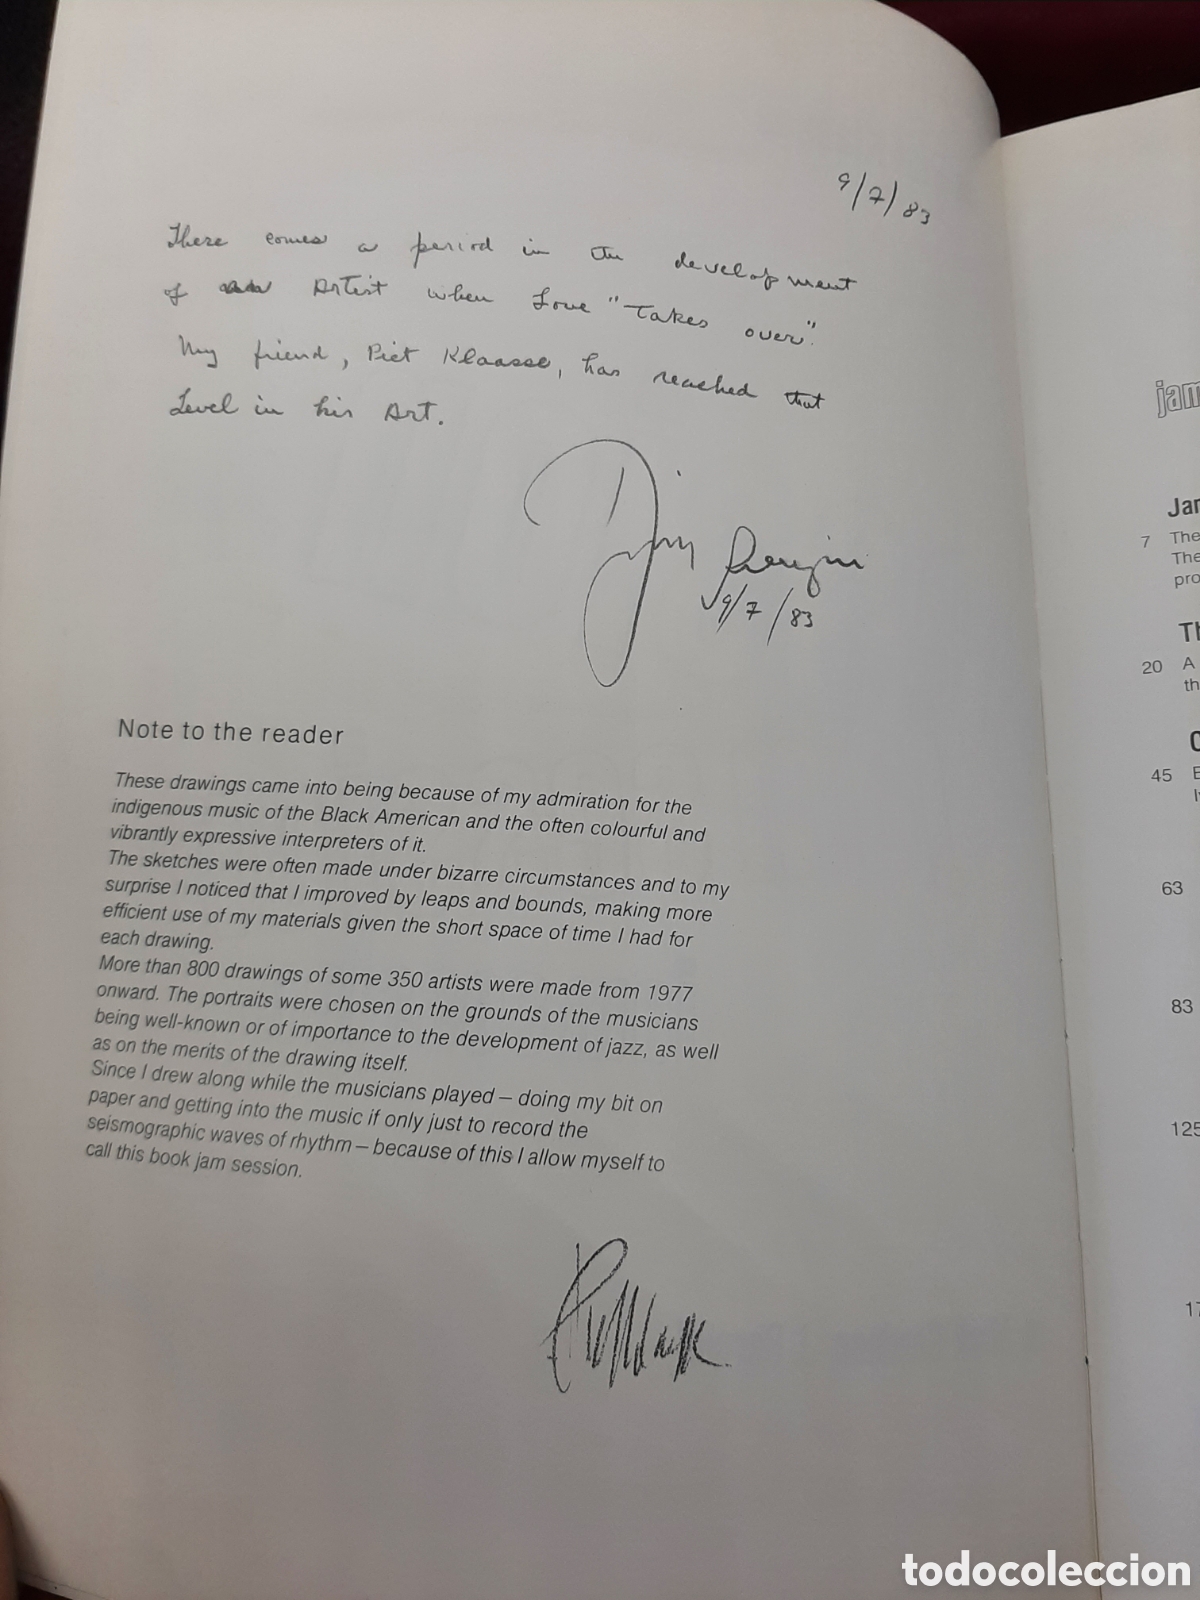 9/7/83
There comes a period in the development
of an Artist when Love "takes over".
My friend, Piet Klaasse, has reached that
Level in his Art.
9/7/83
Note to the reader
These drawings came into being because of my admiration for the
indigenous music of the Black American and the often colourful and
vibrantly expressive interpreters of it.
The sketches were often made under bizarre circumstances and to my
surprise I noticed that I improved by leaps and bounds, making more
efficient use of my materials given the short space of time I had for
each drawing.
More than 800 drawings of some 350 artists were made from 1977
onward. The portraits were chosen on the grounds of the musicians
being well-known or of importance to the development of jazz, as well
as on the merits of the drawing itself.
Since I drew along while the musicians played – doing my bit on
paper and getting into the music if only just to record the
seismographic waves of rhythm – because of this I allow myself to
call this book jam session.
jam
Jam
7 The
The
pro
Th
20 A
th
45
63
83
125
todocoleccion